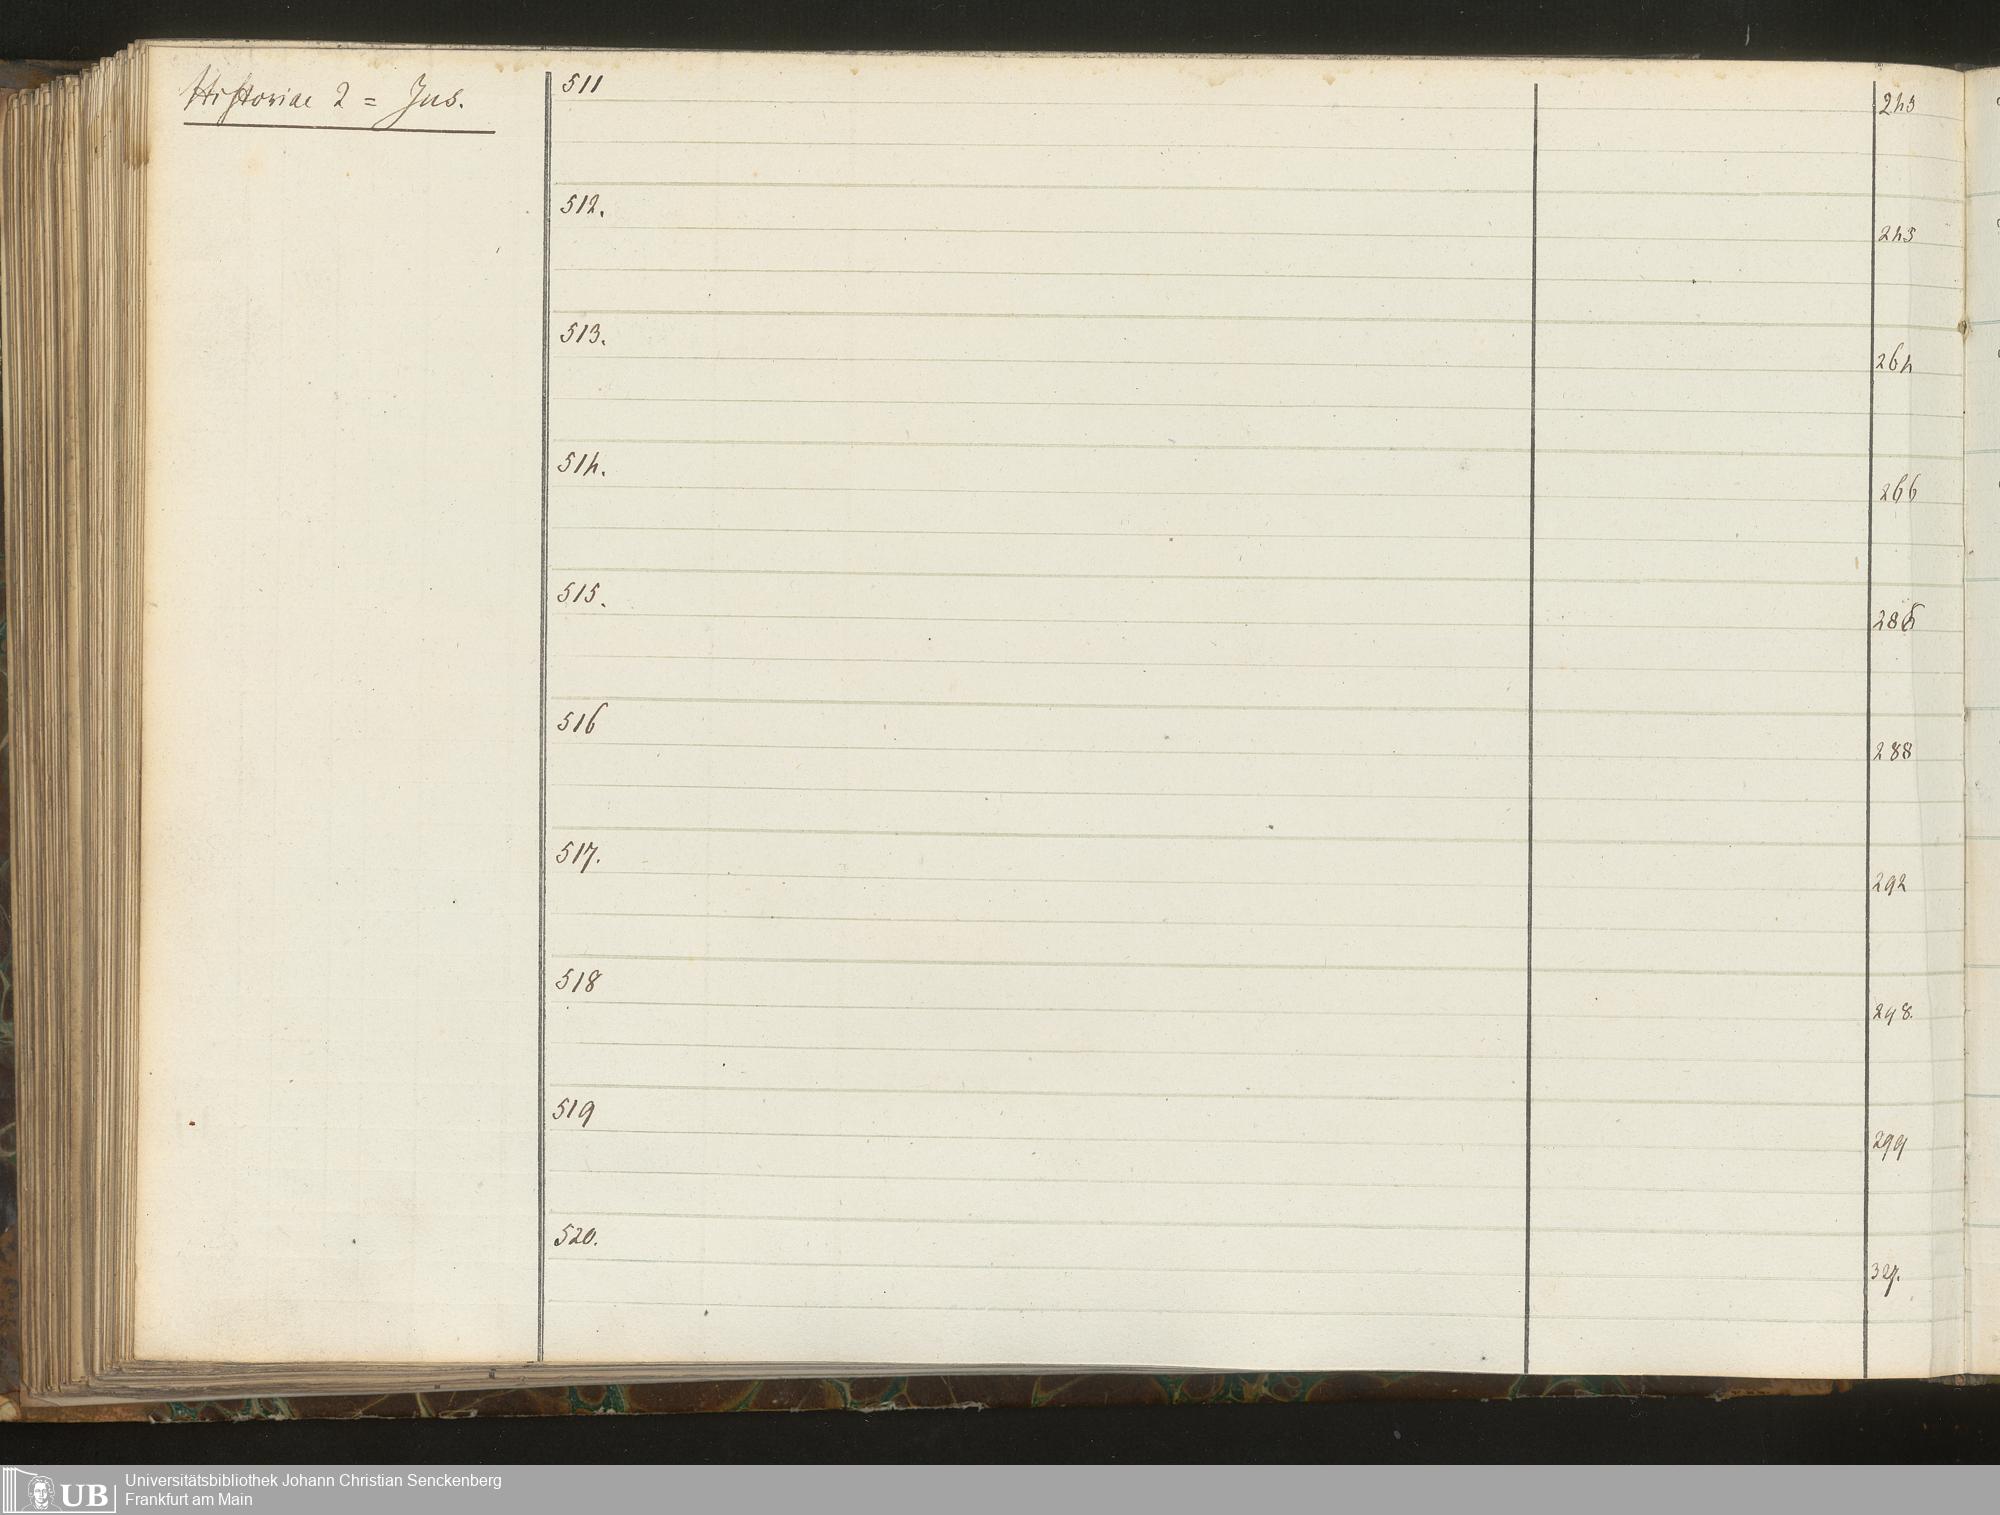 Historiae 2 = Jus.
511
243
512.
243
513.
264
514.
266
515.
516
288
517.
292
518
298.
519
299
520.
327.
UB
Universitätsbibliothek Johann Christian Senckenberg
Frankfurt am Main